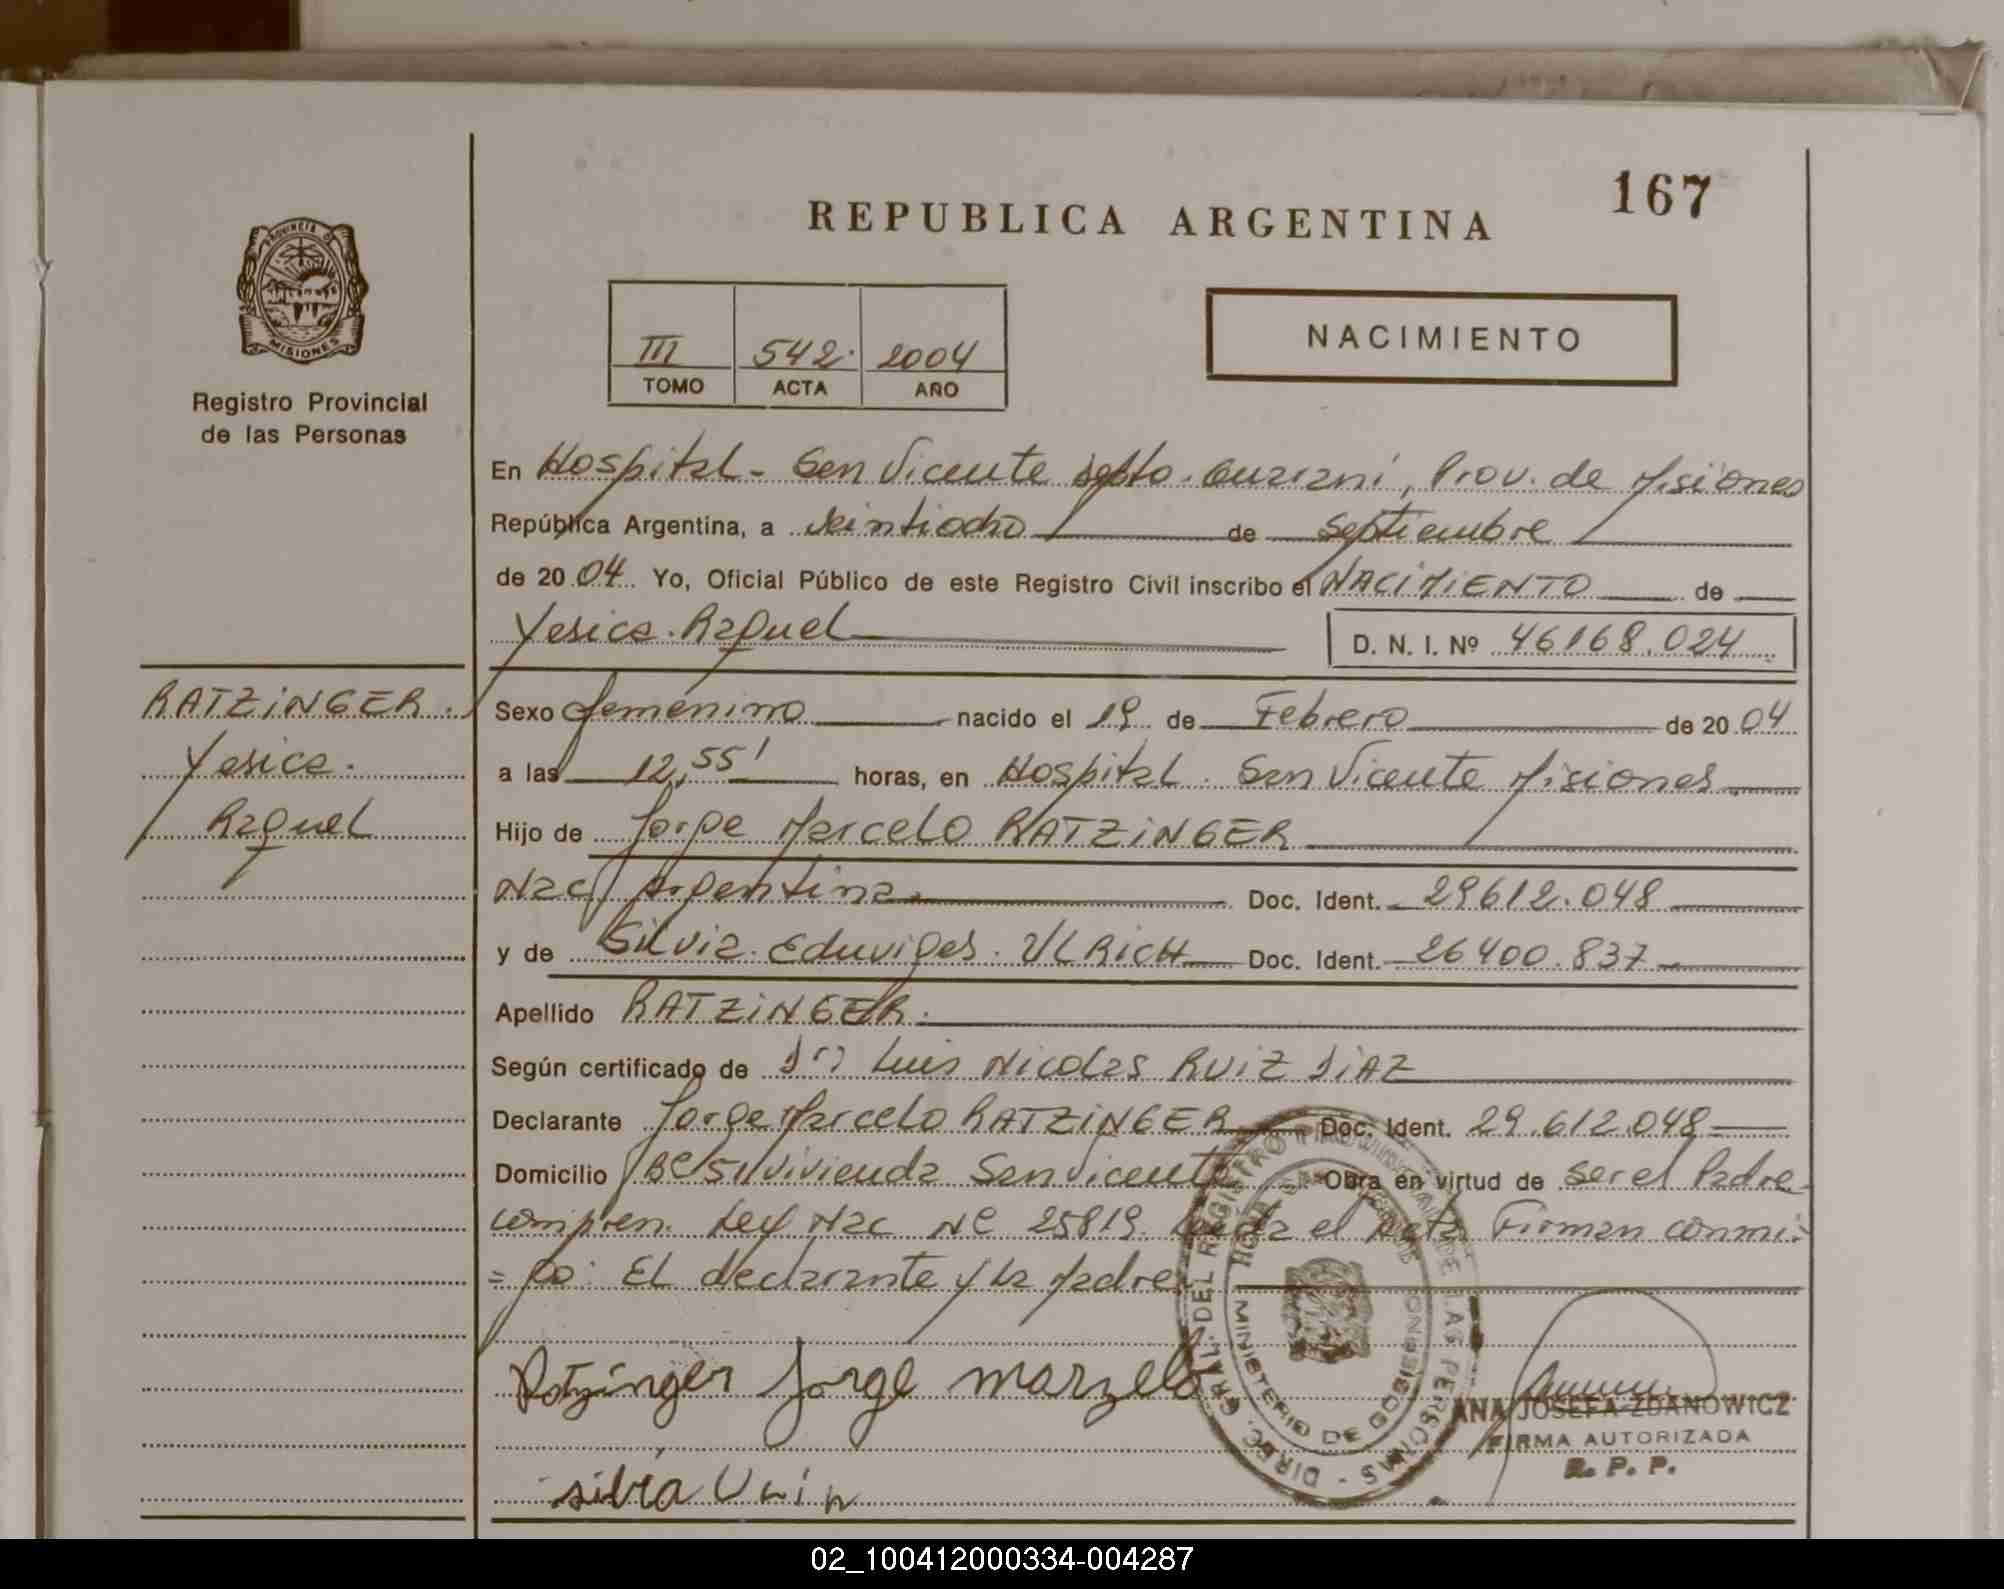 167
REPUBLICA ARGENTINA
PROVINCIA D
MISIONES
Registro Provincial
de las Personas
III 542 2004
TOMO ACTA AÑO
NACIMIENTO
En Hospital - San Vicente Depto. Guaraní, Prov. de Misiones
República Argentina, a Veintiocho de Septiembre
de 20 04 Yo, Oficial Público de este Registro Civil inscribo el NACIMIENTO de
Yesica Raquel D. N. I. Nº 46168.024
RATZINGER.
Yesica.
Raquel
Sexo femenino nacido el 19 de Febrero de 20 04
a las 12,55' horas, en Hospital. San Vicente Misiones
Hijo de Jorge Marcelo RATZINGER
Nac Argentina. Doc. Ident. 29612.048
y de Silvia Eduviges ULRICH Doc. Ident. 26400.837
Apellido RATZINGER.
Según certificado de Dr Luis Nicolas RUIZ DIAZ
Declarante Jorge Marcelo RATZINGER Doc. Ident. 29.612.048
Domicilio Bº 511 vivienda San Vicente Obra en virtud de ser el Padre
compren. Ley Nac Nº 25819. Leida el Acta Firman conmi-
=go: EL declarante y La Madre
Ratzinger Jorge marzelo
silvia
DIREC. GRAL. DEL REGISTRO PROVINCIAL DE LAS PERSONAS
MINISTERIO DE GOBIERNO
MISIONES
ANA JOSEFA ZDANOWICZ
FIRMA AUTORIZADA
R. P. P.
02_100412000334-004287